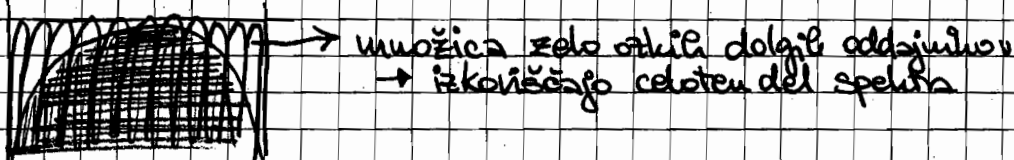 množica zelo ozkih dolgih oddajnikov
→ izkoriščajo celoten del spektra